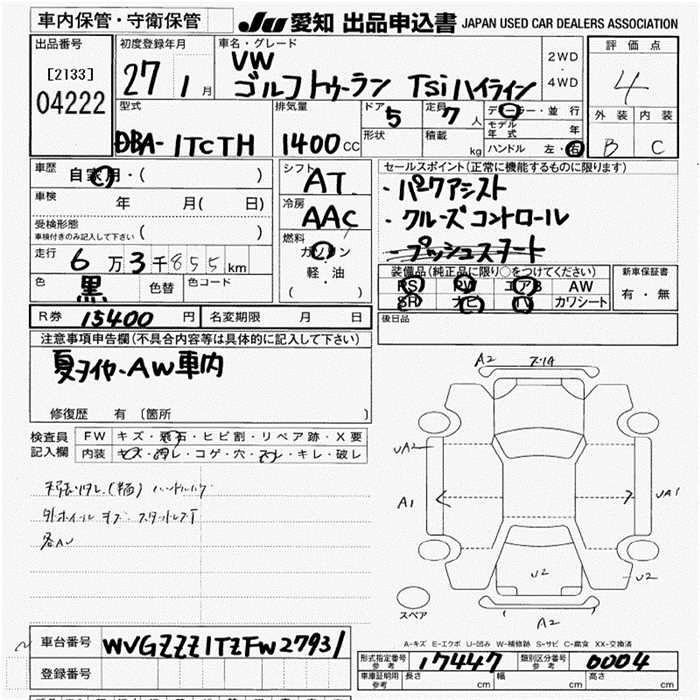 車内保管・守衛保管
JU 愛知 出品申込書 JAPAN USED CAR DEALERS ASSOCIATION
出品番号
[2133]
04222
初度登録年月
27 1月
車名・グレード
VW
ゴルフトゥーラン TSiハイライン
2WD
・
4WD
評価点
4
外装 内装
B C
型式
DBA-1TCTH
排気量
1400cc
ドア
5
形状
定員
7人
積載
kg
ディーラー・並行
モデル年式 年
ハンドル 左・右
車歴
自家用・( )
車検
年 月( 日)
受検形態
車検付きのみ記入して下さい ( )
走行 6万3千855km
色 黒 色替 色コード
シフト
AT
冷房
AAC
燃料
ガソリン
軽・油
( )
セールスポイント(正常に機能するものに限ります)
・パークアシスト
・クルーズコントロール
プッシュスタート
装備品(純正品に限り○をつけてください)
PS PW エアB AW
SR ナビ TV カワシート
新車保証書
有・無
R券 15400円 名変期限 月 日
後日品
注意事項申告欄(不具合内容等は具体的に記入して下さい)
夏タイヤ-AW車内
修復歴 有〔箇所 〕
検査員
記入欄
FW キズ・飛石・ヒビ割・リペア跡・X要
内装 キズ・汚レ・コゲ・穴・スレ・キレ・破レ
各AU
A2
UA2
A1
UA1
U2
U2
A2
スペア
A-キズ E-エクボ U-凹み W-補修跡 S-サビ C-腐食 XX-交換済
車台番号 WVGZZZ1TZFW27931
登録番号
形式指定番号 参考 17447
類別区分番号 参考 0004
車庫証明用 参考 長さ cm 幅 cm 高さ cm